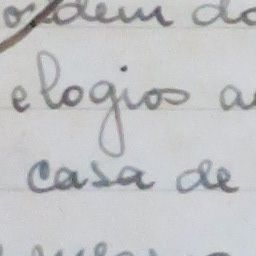 ordem do
elogios a
casa de